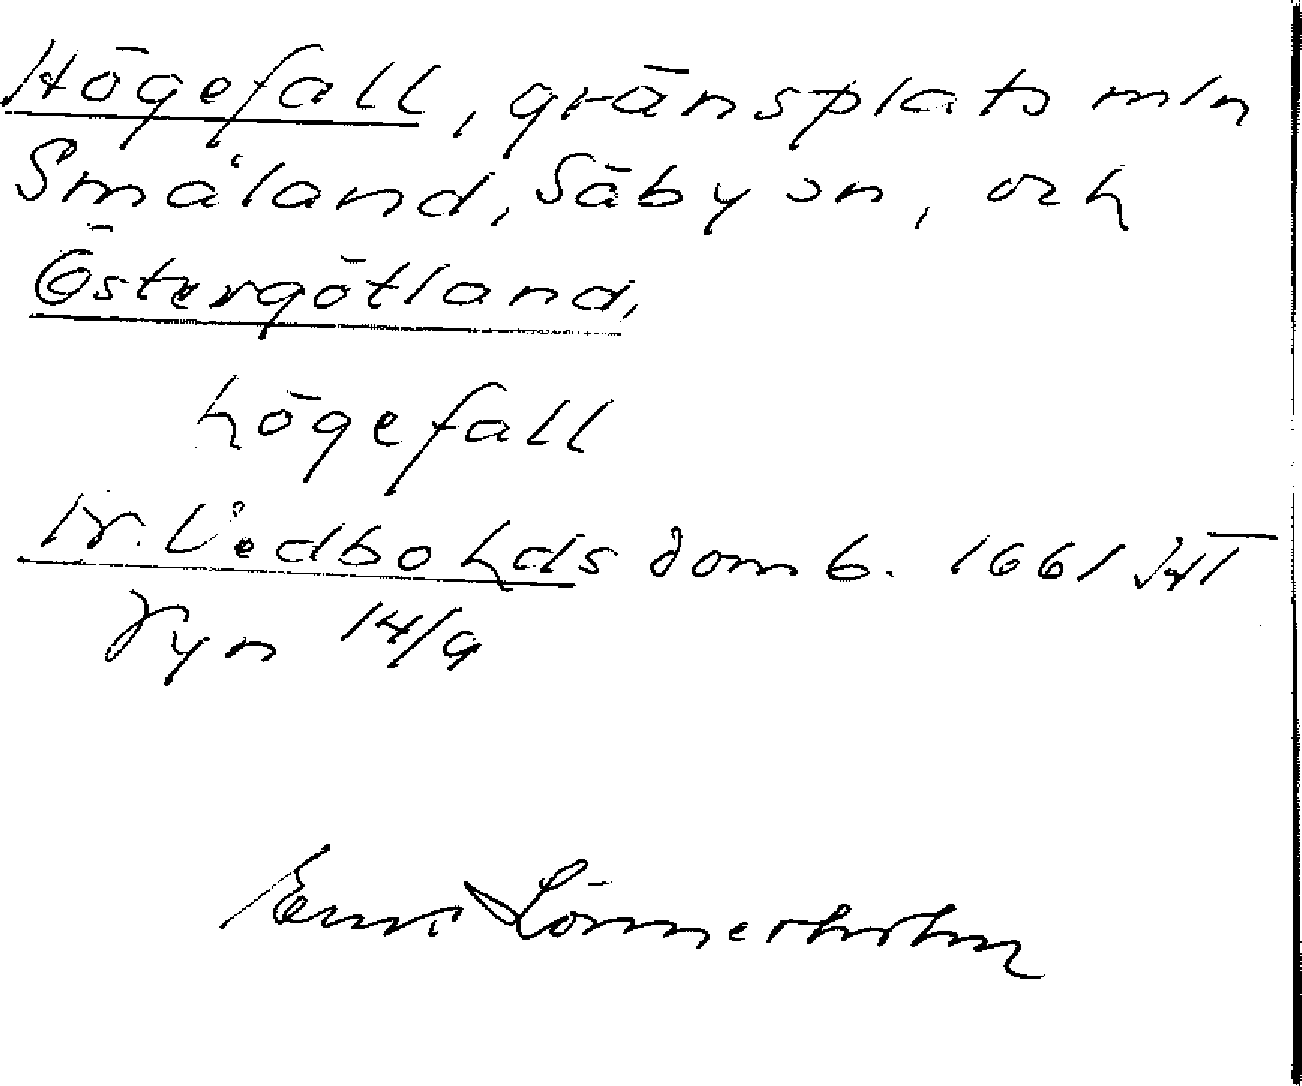 Högefall, gränsplats mln
Småland, Säby sn, och
Östergötland,
högefall
N. Vedbohds domb. 1661 HT
Fyn 14/9
Lönnerholm